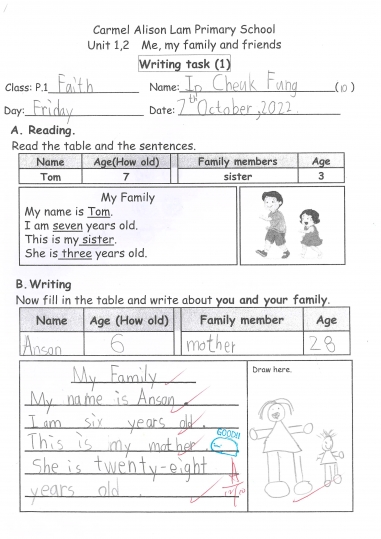 Carmel Alison Lam Primary School
Unit 1,2 Me, my family and friends
Writing task (1)
Class: P.1 Faith Name: Ip Cheuk Fung (10)
Day: Friday Date: 7th October, 2022.
A. Reading.
Read the table and the sentences.
Name Age(How old) Family members Age
Tom 7 sister 3
My Family
My name is Tom.
I am seven years old.
This is my sister.
She is three years old.
B. Writing
Now fill in the table and write about you and your family.
Name Age (How old) Family member Age
Anson 6 mother 28
My Family
My name is Anson.
I am six years old.
This is my mother.
GOOD!!
She is twenty-eight
years old.
Draw here.